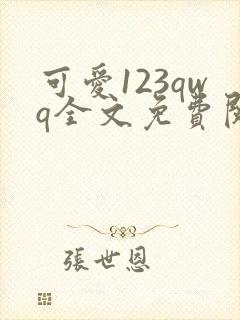 可愛123qw
q全文免費閱
張世恩